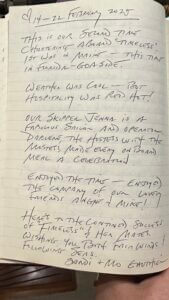 14-22 February 2025
This is our second time
chartering aboard "Timeless"
1st was in Maine - this time
in
Weather was cool - but
hospitality was red hot!
Our skipper Jenna is a
fabulous sailor and
the hostess with the
mostess made every on board
meal a celebration!
Enjoyed the time - enjoyed
the company of our
friends & Mike!
Here's to the continued success
of "Timeless" & her mates
wishing you both fair winds &
following seas.